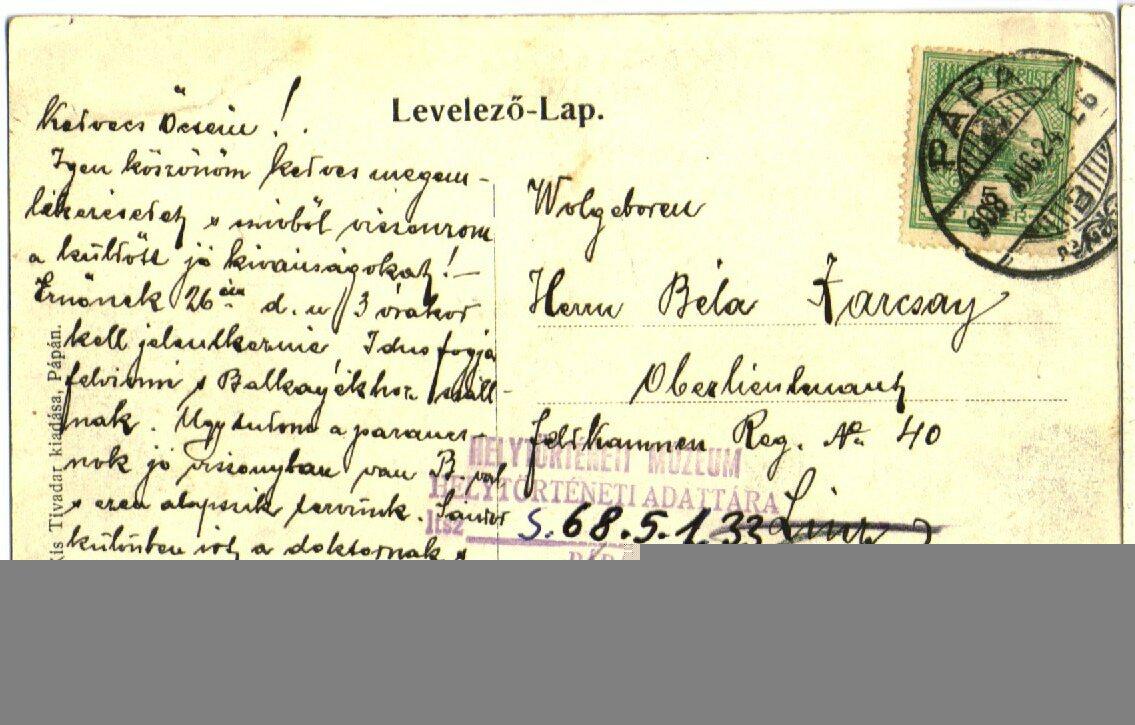 Levelező-Lap.
Kedves Öcsém!
Igen köszönöm kedves megem-
lékezésedet s szivből viszonzom
a küldött jó kivánságokat! —
Ernőnek 26 án d. u. 3 órakor
kell jelentkeznie, Idus fogja
felvinni s Balkayékhoz száll-
nak. Ugy tudom a parancs-
nok jó viszonyban van B.-val
s erre alapszik tervünk. Sándor
különben írt a doktornak s
Wolgeboren
Herrn Béla Karcsay
Oberlieutenant
Feldkannen Reg. No. 40
Linz
HELYTÖRTÉNETI MÚZEUM
HELYTÖRTÉNETI ADATTÁRA
ltsz S. 68.5.1.33
PÁPA
908 AUG. 24. E6
B
Kis Tivadar kiadása, Pápán.